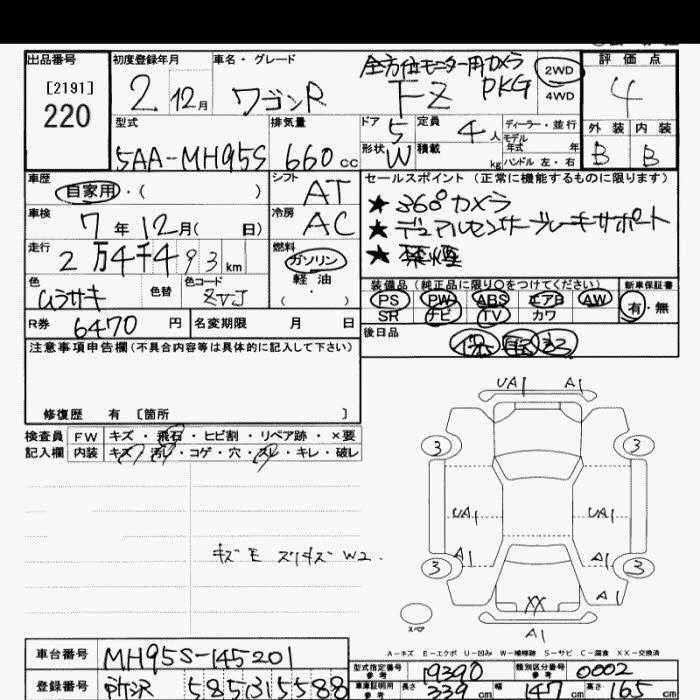 出品番号
[2191]
220
初度登録年月
2 12月
車名・グレード
全方位モニター用カメラ
ワゴンR FZ PKG
2WD
4WD
評価点
4
型式
5AA-MH95S
排気量
660cc
ドア
5
定員
4人
形状
W
積載
kg
ディーラー・並行
モデル
年式 年
ハンドル 左・右
外装 内装
B B
車歴
自家用・( )
シフト
AT
セールスポイント(正常に機能するものに限ります)
★ 360°カメラ
★ デュアルセンサーブレーキサポート
★ 禁煙
車検
7年12月( 日)
冷房
AC
走行
2万4千493km
燃料
ガソリン
軽油
( ・ )
色
ムラサキ
色替
色コード
ZVJ
装備品(純正品に限り○をつけてください)
PS PW ABS エアB AW
SR ナビ TV カワ
新車保証書
有・無
R券 6470円
名変期限 月 日
後日品
注意事項申告欄(不具合内容等は具体的に記入して下さい)
修復歴 有 [箇所 ]
検査員
記入欄
FW キズ・飛石・ヒビ割・リペア跡・×要
内装 キズ・汚レ・コゲ・穴・スレ・キレ・破レ
キズモ スリキズ W2.
UA1 A1
3 3
UA1 UA1
A1 A1
3 3
XX A1
スペア
A1
A-キズ E-エクボ U-凹み W-補修跡 S-サビ C-腐食 XX-交換済
車台番号 MH95S-145201
登録番号 所沢 585 ほ 5588
型式指定番号
参考
19390
類別区分番号
参考
0002
車庫証明用
参考
長さ 339cm 幅 147cm 高さ 165cm